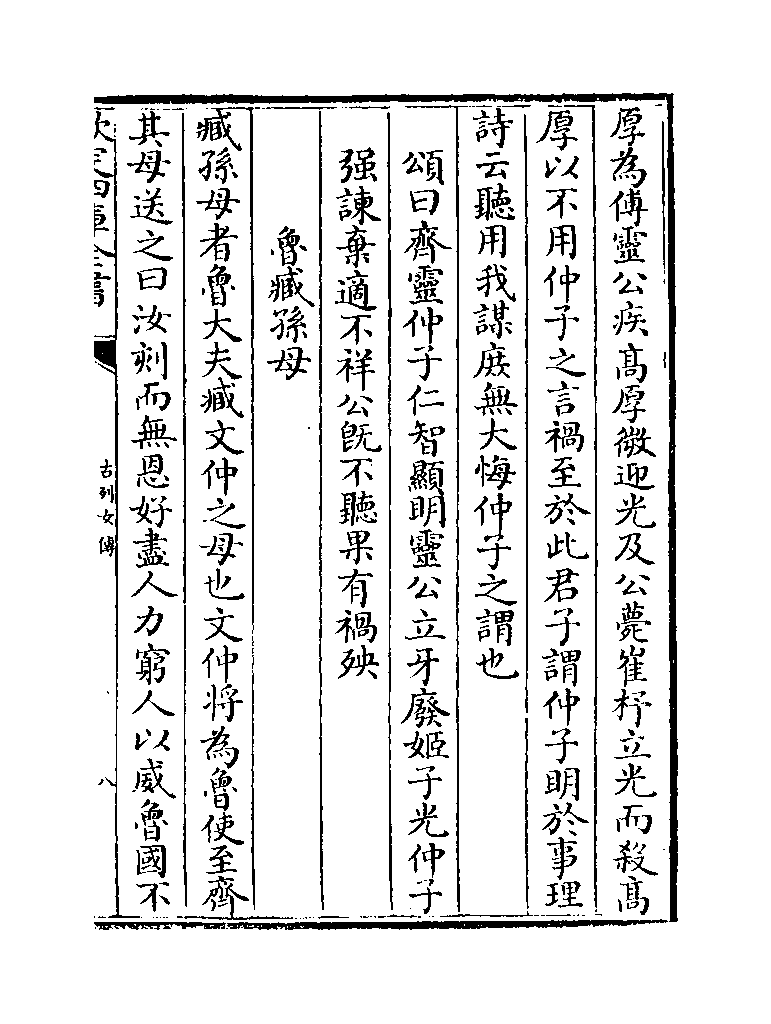 厚為傅靈公疾髙厚微迎光及公薨崔杼立光而殺髙
厚以不用仲子之言禍至於此君子謂仲子明於事理
詩云聽用我謀庻無大悔仲子之謂也
頌曰齊靈仲子仁智顯明靈公立牙廢姬子光仲子
强諫棄適不祥公旣不聽果有禍殃
魯臧孫母
臧孫母者魯大夫臧文仲之母也文仲将為魯使至齊
其母送之曰汝刻而無恩好盡人力窮人以威魯國不
欽定四庫全書
古列女傳
八